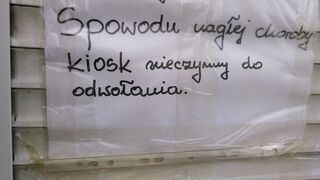 Spowodu nagłej choroby
kiosk nieczynny do
odwołania.